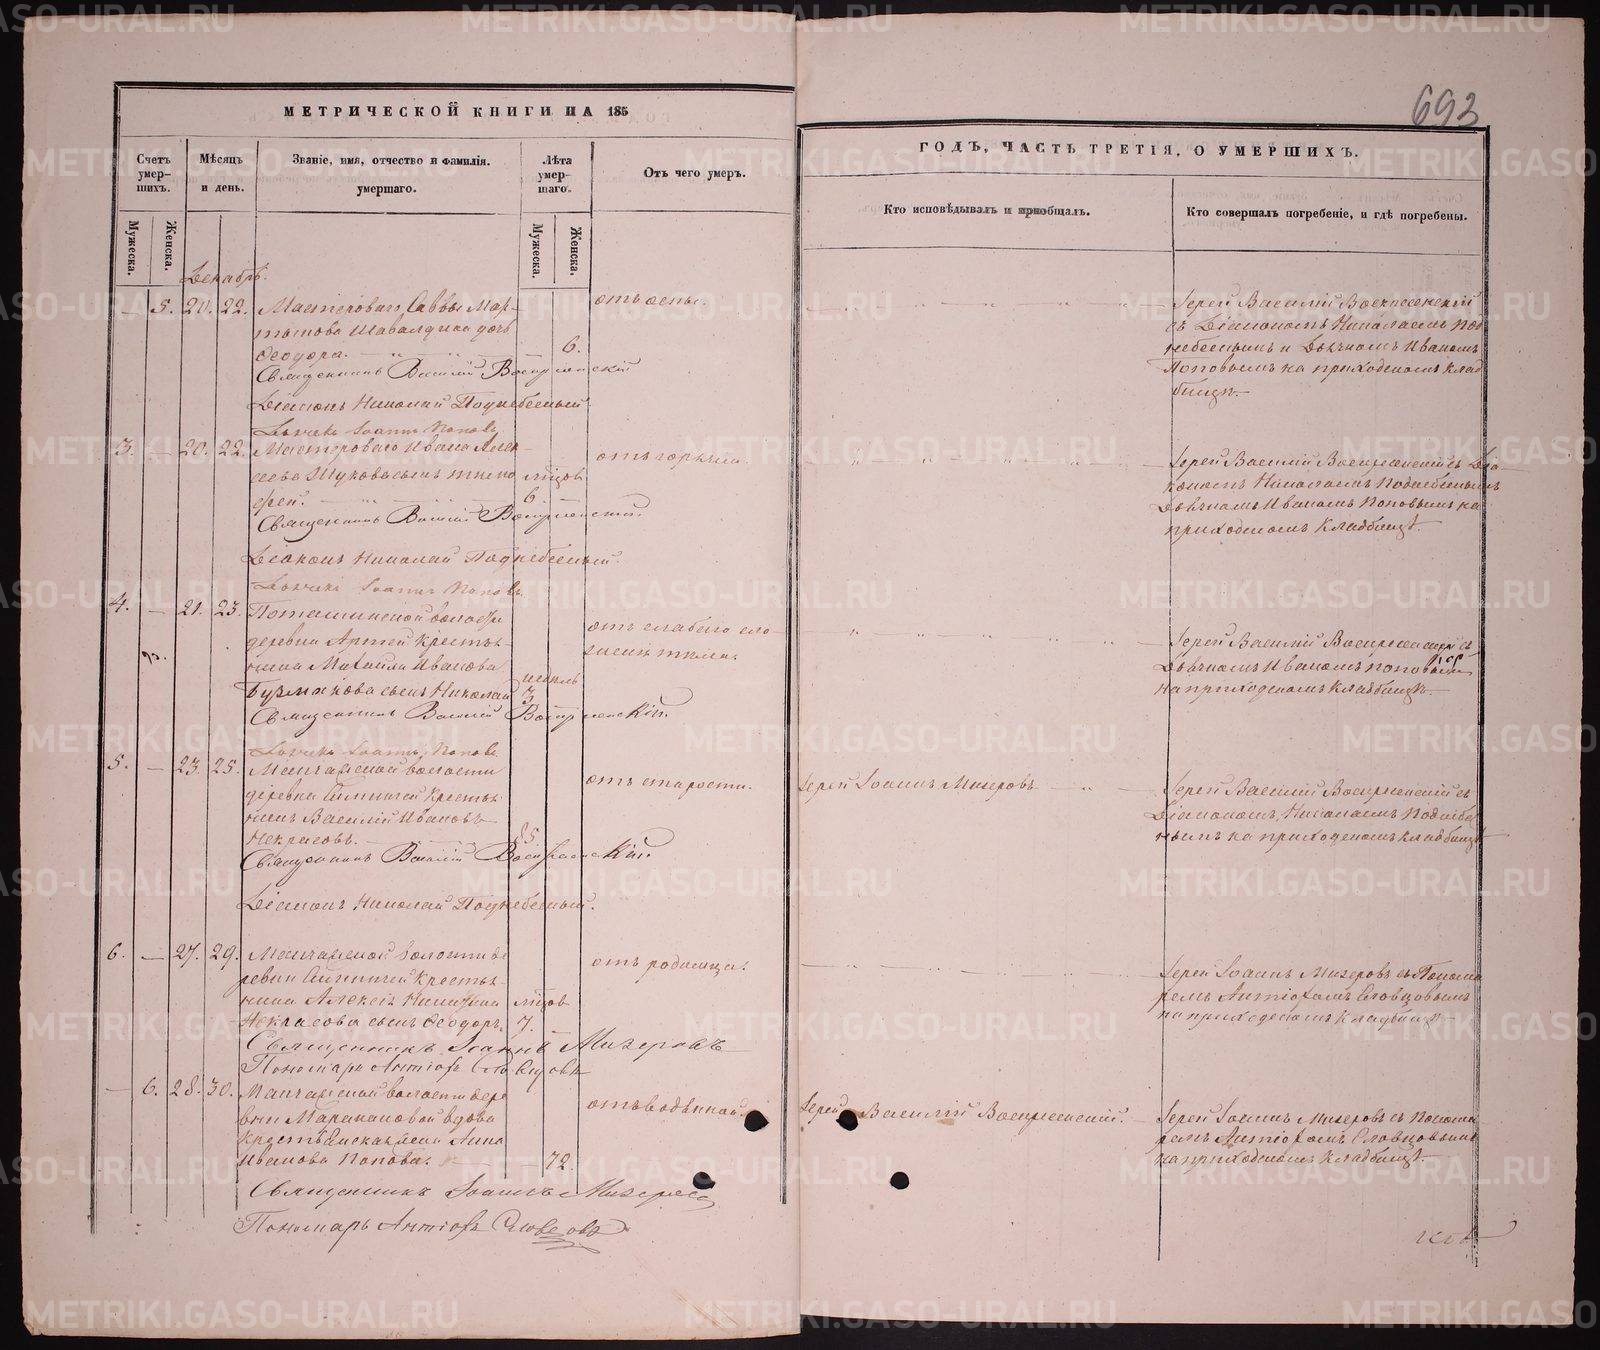 МЕТРИЧЕСКОЙ КНИГИ НА 185
693
ГОДЪ, ЧАСТЬ ТРЕТІЯ, О УМЕРШИХЪ.
Счетъ умер-шихъ.
Мѣсяцъ и день.
Званіе, имя, отчество и фамилія. умершаго.
Лѣта умер-шаго.
Отъ чего умеръ.
Кто исповѣдывалъ и пріобщалъ.
Кто совершалъ погребеніе, и гдѣ погребены.
Мужеска.
Женска.
Мужеска.
Женска.
Декабрь.
— 5. 20. 22. Мастероваго Саввы Мар-
тынова дочь
Ѳеодора.
6.
отъ оспы.
Священникъ Василій Воскресенскій
Діаконъ Николай Поднебесный
Дьячекъ Іоаннъ Поповъ
Іерей Василій Воскресенскій
съ Діакономъ Николаемъ Под
небеснымъ и Дьячкомъ Иваномъ
Поповымъ на приходскомъ клад
бищѣ.
3. — 20. 22. Мастероваго Ивана Алек
сѣева сынъ Тимо
фей.
мѣсцов
6.
отъ горячки
Священникъ Василій Воскресенскій
Діаконъ Николай Поднебесный.
Дьячекъ Іоаннъ Поповъ
Іерей Василій Воскресенскій съ Діа
кономъ Николаемъ Поднебеснымъ
Дьячкомъ Иваномъ Поповымъ на
приходскомъ кладбищѣ.
4. — 21. 23. Поташинской волости
деревни Артей крестья-
нина Михаила Иванова
Бузмакова сынъ Николай
недѣль
3.
отъ слабаго сло-
женія тѣла.
Священникъ Василій Воскресенскій.
Дьячекъ Іоаннъ Поповъ
Іерей Василій Воскресенскій съ
Дьячкомъ Иваномъ Поповымъ
на приходскомъ кладбищѣ.
5. — 23. 25. Манчажской волости
деревни крестья-
нинъ Василій Ивановъ
Некрасовъ.
85
отъ старости.
Іерей Іоаннъ Мизеровъ
Священникъ Василій Воскресенскій.
Діаконъ Николай Поднебесный.
Іерей Василій Воскресенскій съ
Діакономъ Николаемъ Поднебе
снымъ на приходскомъ кладбищѣ
6. — 27. 29. Манчажской волости де
ревни крестья-
нина Алексѣя Никитина
Некрасова сынъ Ѳеодоръ.
мѣсцов
7.
отъ родимца.
Священникъ Іоаннъ Мизеровъ
Пономарь Антіохъ Словцовъ
Іерей Іоаннъ Мизеровъ съ Понома
ремъ Антіохомъ Словцовымъ
на приходскомъ кладбищѣ
— 6. 28. 30. Манчажской волости дере
вни вдова
крестьянская жена Анна
Иванова Попова.
72.
отъ водяной.
Іерей Василій Воскресенскій.
Священникъ Іоаннъ Мизеровъ
Пономарь Антіохъ Словцовъ
Іерей Іоаннъ Мизеровъ съ Понома
ремъ Антіохомъ Словцовымъ
на приходскомъ кладбищѣ.
METRIKI.GASO-URAL.RU